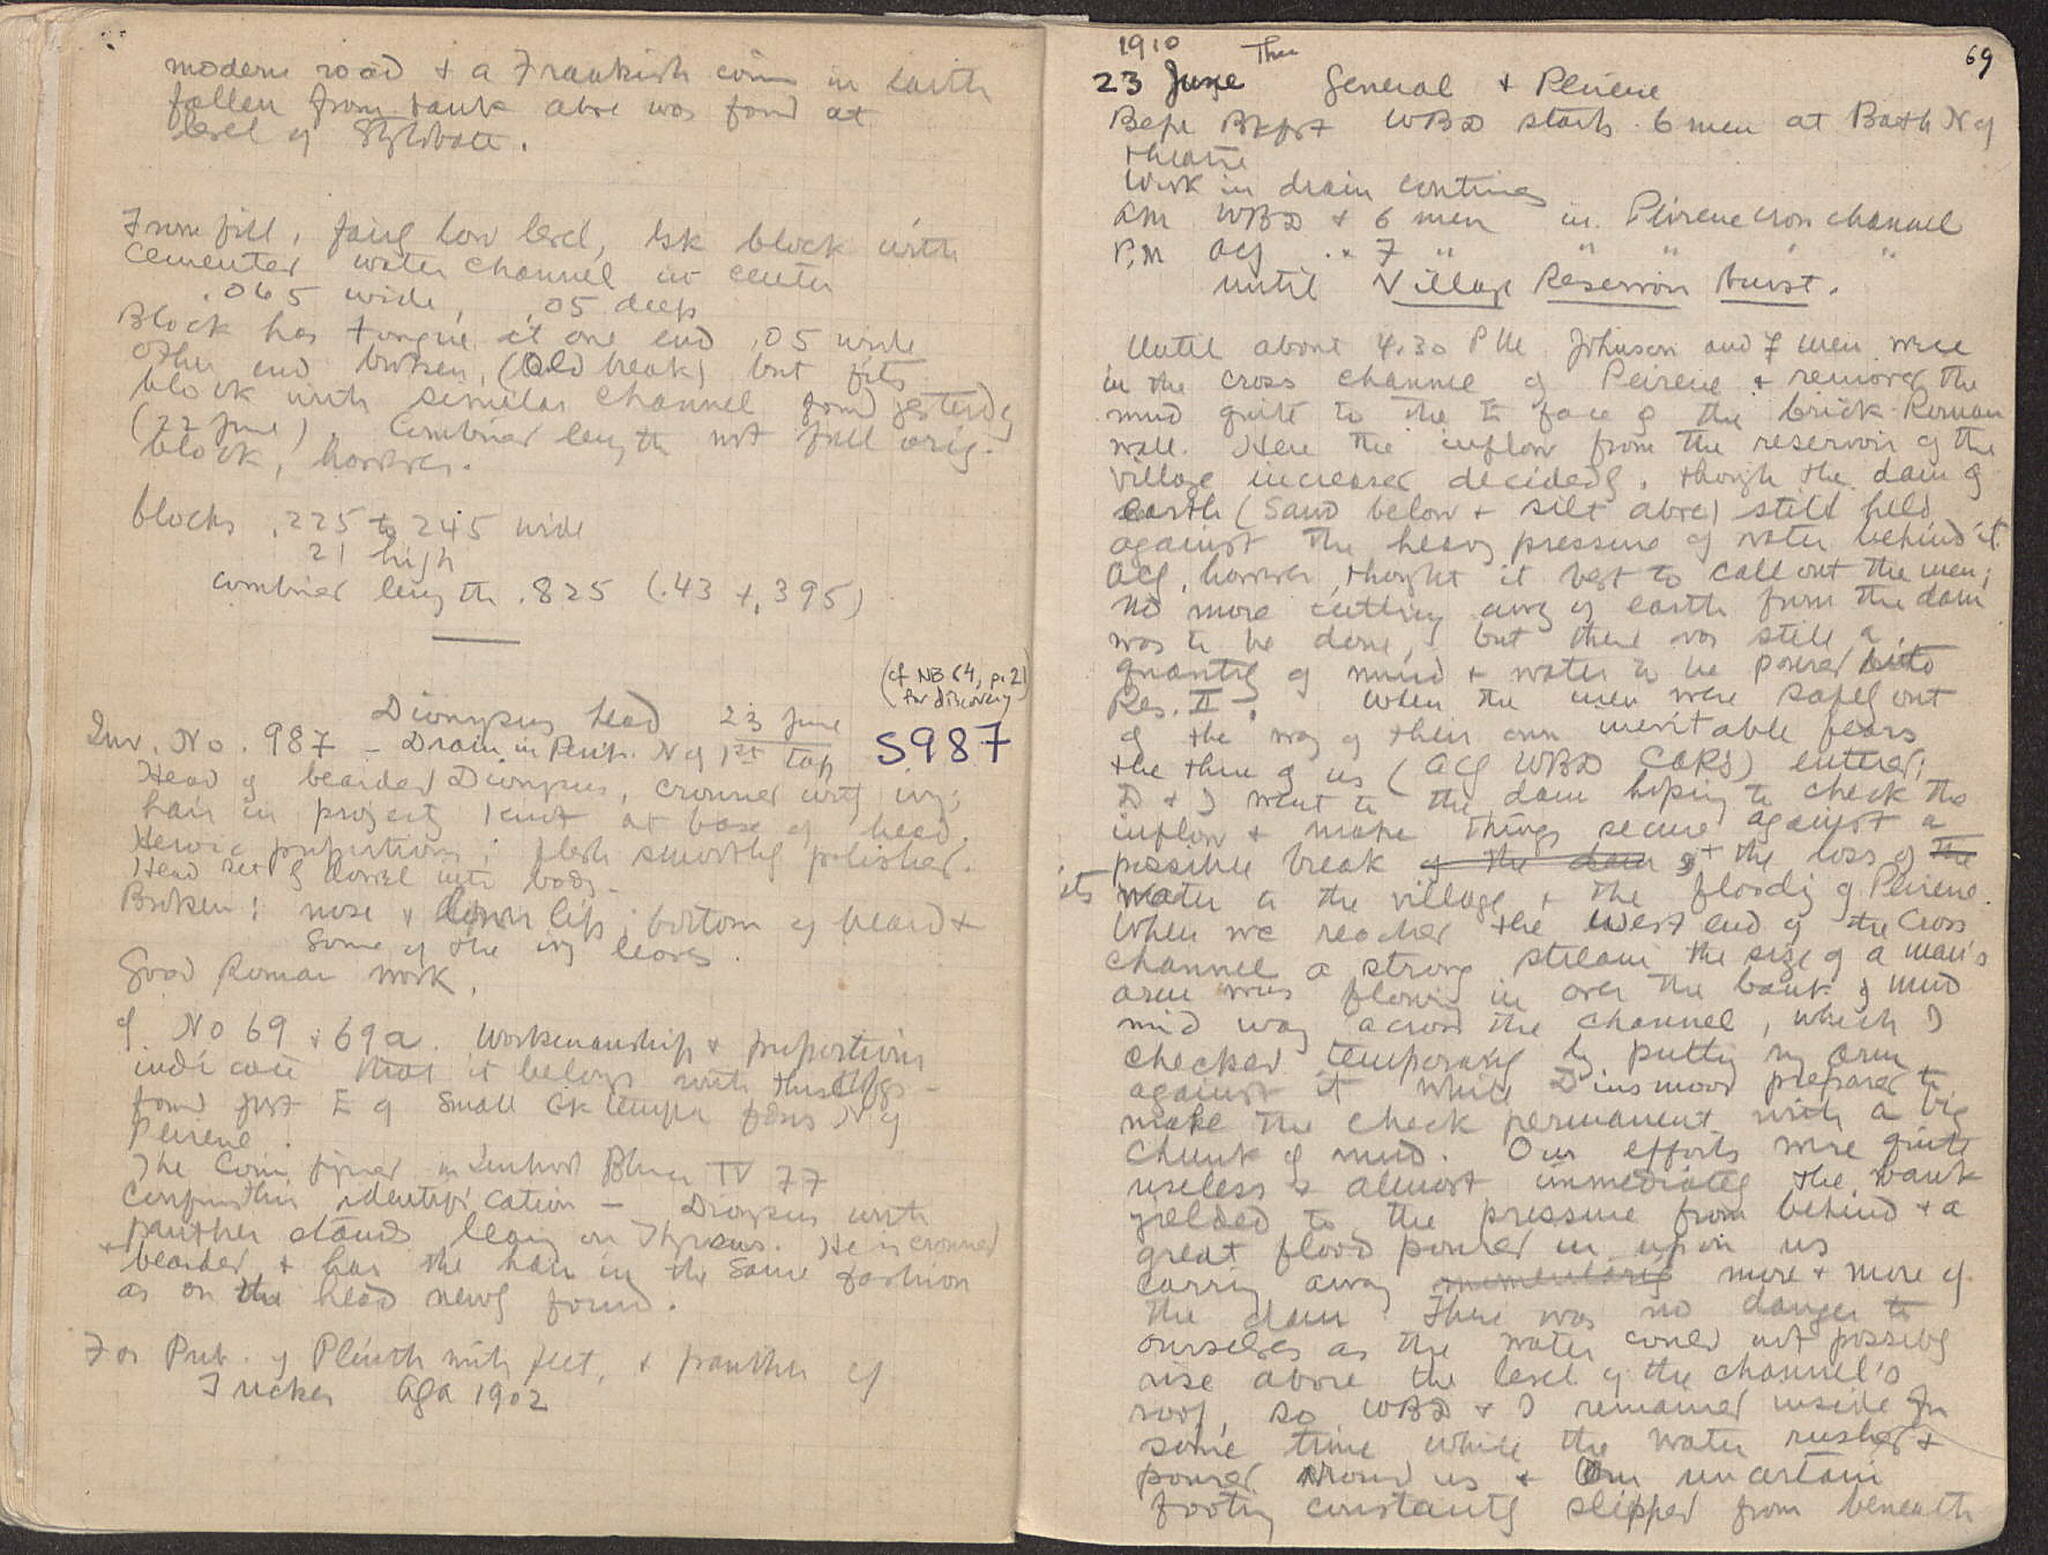 modern road & a Frankish coin in earth
fallen from bank above was found at
level of Stylobate.
From fill, fairly low level, Gk block with
cemented water channel in center
.065 wide, .05 deep
Block has tongue at one end .05 wide
other end broken, (Old break) but fits
block with similar channel found yesterday
(22 June). Combined length not full orig.
block, however.
blocks .225 to 245 wide
21 high
combined length .825 (.43 + .395)
(cf NB 64, p. 21
for discovery)
Dionysus head 23 June
Inv. No. 987 – Drain in Perib. N of 1st tap S987
Head of bearded Dionysus, crowned with ivy;
hair in projecting knot at base of head.
Heroic proportions; flesh smoothly polished.
Head set by dowel into body –
Broken: nose & lower lip; bottom of beard &
some of the ivy leaves.
Good Roman work.
cf No 69 & 69a. Workmanship & proportions
indicate that it belongs with these
found just E of small Gk temple N of
Peirene.
The Coin figured in Imhoof Blumer IV 77
confirms this identification – Dionysus with
panther stands leaning on Thyrsus. He is crowned
& bearded, & has the hair in the same fashion
as on the head newly found.
For Pub. of Plinth with feet, & panther cf
Tucker AJA 1902
69
1910
23 June Thu General & Peirene
Before Bkfst WBD starts 6 men at Bath N of
theatre
Work in drain continues
AM WBD & 6 men in Peirene cross channel
P.M ACJ " 7 " " " " "
until Village Reservoir burst.
Until about 4.30 PM Johnson and 7 men were
in the cross channel of Peirene & removed the
mud quite to the face of the brick Roman
wall. Here the inflow from the reservoir of the
village increased decidedly, though the dam of
earth (sand below & silt above) still held
against the heavy pressure of water behind it.
ACJ, however, thought it best to call out the men;
no more cutting away of earth from the dam
was to be done, but there was still a
quantity of mud & water to be poured into
Res. II. When the men were safely out
of the way of their own inevitable fears
the three of us (ACJ WBD CORS) entered;
D & I went to the dam hoping to check the
inflow & make things secure against a
possible break of the dam & the loss of the
its water to the village & the flooding of Peirene.
When we reached the West end of the Cross
channel a strong stream the size of a man's
arm was flowing in over the bank of mud
mid way across the channel, which I
checked temporarily by putting my arm
against it while Dinsmoor prepared to
make the check permanent with a big
chunk of mud. Our efforts were quite
useless & almost immediately the bank
yielded to the pressure from behind & a
great flood poured in upon us
carrying away momentarily more & more of
the dam There was no danger to
ourselves as the water could not possibly
rise above the level of the channel's
roof, so WBD & I remained inside for
some time while the water rushed &
poured around us & our uncertain
footing constantly slipped from beneath